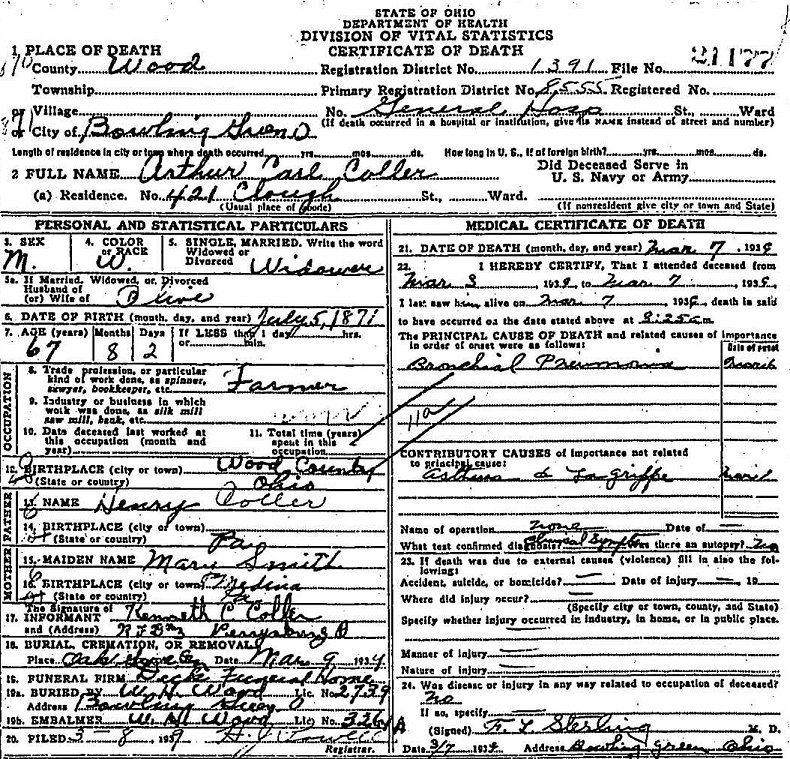 STATE OF OHIO
DEPARTMENT OF HEALTH
DIVISION OF VITAL STATISTICS
CERTIFICATE OF DEATH
21177
1. PLACE OF DEATH
County Wood
Registration District No. 1391 File No.
Township
Primary Registration District No. 8555 Registered No.
or Village
No. General Hosp St., Ward
or City of Bowling Green O
(If death occurred in a hospital or institution, give its NAME instead of street and number)
Length of residence in city or town where death occurred yrs. mos. ds. How long in U. S., if of foreign birth? yrs. mos. ds.
2 FULL NAME Arthur Carl Coller
Did Deceased Serve in
U. S. Navy or Army
(a) Residence. No. 421 Clough St., Ward.
(Usual place of abode)
(If nonresident give city or town and State)
PERSONAL AND STATISTICAL PARTICULARS
3. SEX
M.
4. COLOR
or RACE
W.
5. SINGLE, MARRIED. Write the word
Widowed or
Divorced
Widower
5a. If Married, Widowed, or Divorced
Husband of
(or) Wife of Olive
6. DATE OF BIRTH (month, day, and year) July 5, 1871
7. AGE (years) Months Days If LESS than 1 day hrs.
or min.
67 8 2
OCCUPATION
8. Trade profession, or particular
kind of work done, as spinner,
sawyer, bookkeeper, etc. Farmer
9. Industry or business in which
work was done, as silk mill
saw mill, bank, etc.
10. Date deceased last worked at
this occupation (month and
year)
11. Total time (years)
spent in this
occupation
12. BIRTHPLACE (city or town) Wood County
(State or country) Ohio
FATHER
13. NAME Henry Coller
14. BIRTHPLACE (city or town)
(State or country) Pa
MOTHER
15. MAIDEN NAME Mary Smith
16. BIRTHPLACE (city or town) Medina
(State or country)
17. The Signature of
INFORMANT Kenneth C Coller
and (Address) Perrysburg O
18. BURIAL, CREMATION, OR REMOVAL
Place Date Mar 9 1939
19. FUNERAL FIRM Funeral Home
19a. BURIED BY W. H. Wood Lic No. 2739
Address Bowling Green O
19b. EMBALMER W. H. Wood Lic No. 3261 A
20. FILED 3-8 1939
Registrar.
MEDICAL CERTIFICATE OF DEATH
21. DATE OF DEATH (month, day, and year) Mar 7 1939
22. I HEREBY CERTIFY, That I attended deceased from
Mar 3 1939, to Mar 7 1939,
I last saw him alive on Mar 7 1939, death is said
to have occurred on the date stated above at 8:25 am
The PRINCIPAL CAUSE OF DEATH and related causes of importance
in order of onset were as follows:
Date of onset
Bronchial Pneumonia March
11a
CONTRIBUTORY CAUSES of importance not related
to principal cause:
Asthma & Lagriffe
Name of operation none Date of
What test confirmed diagnosis? Clinical Symptom Was there an autopsy? No
23. If death was due to external causes (violence) fill in also the following:
Accident, suicide, or homicide? Date of injury 19
Where did injury occur?
(Specify city or town, county, and State)
Specify whether injury occurred in industry, in home, or in public place.
Manner of injury
Nature of injury
24. Was disease or injury in any way related to occupation of deceased?
No
If so, specify
(Signed) F. L. Sterling M. D.
Date 3/7 1939 Address Bowling Green Ohio